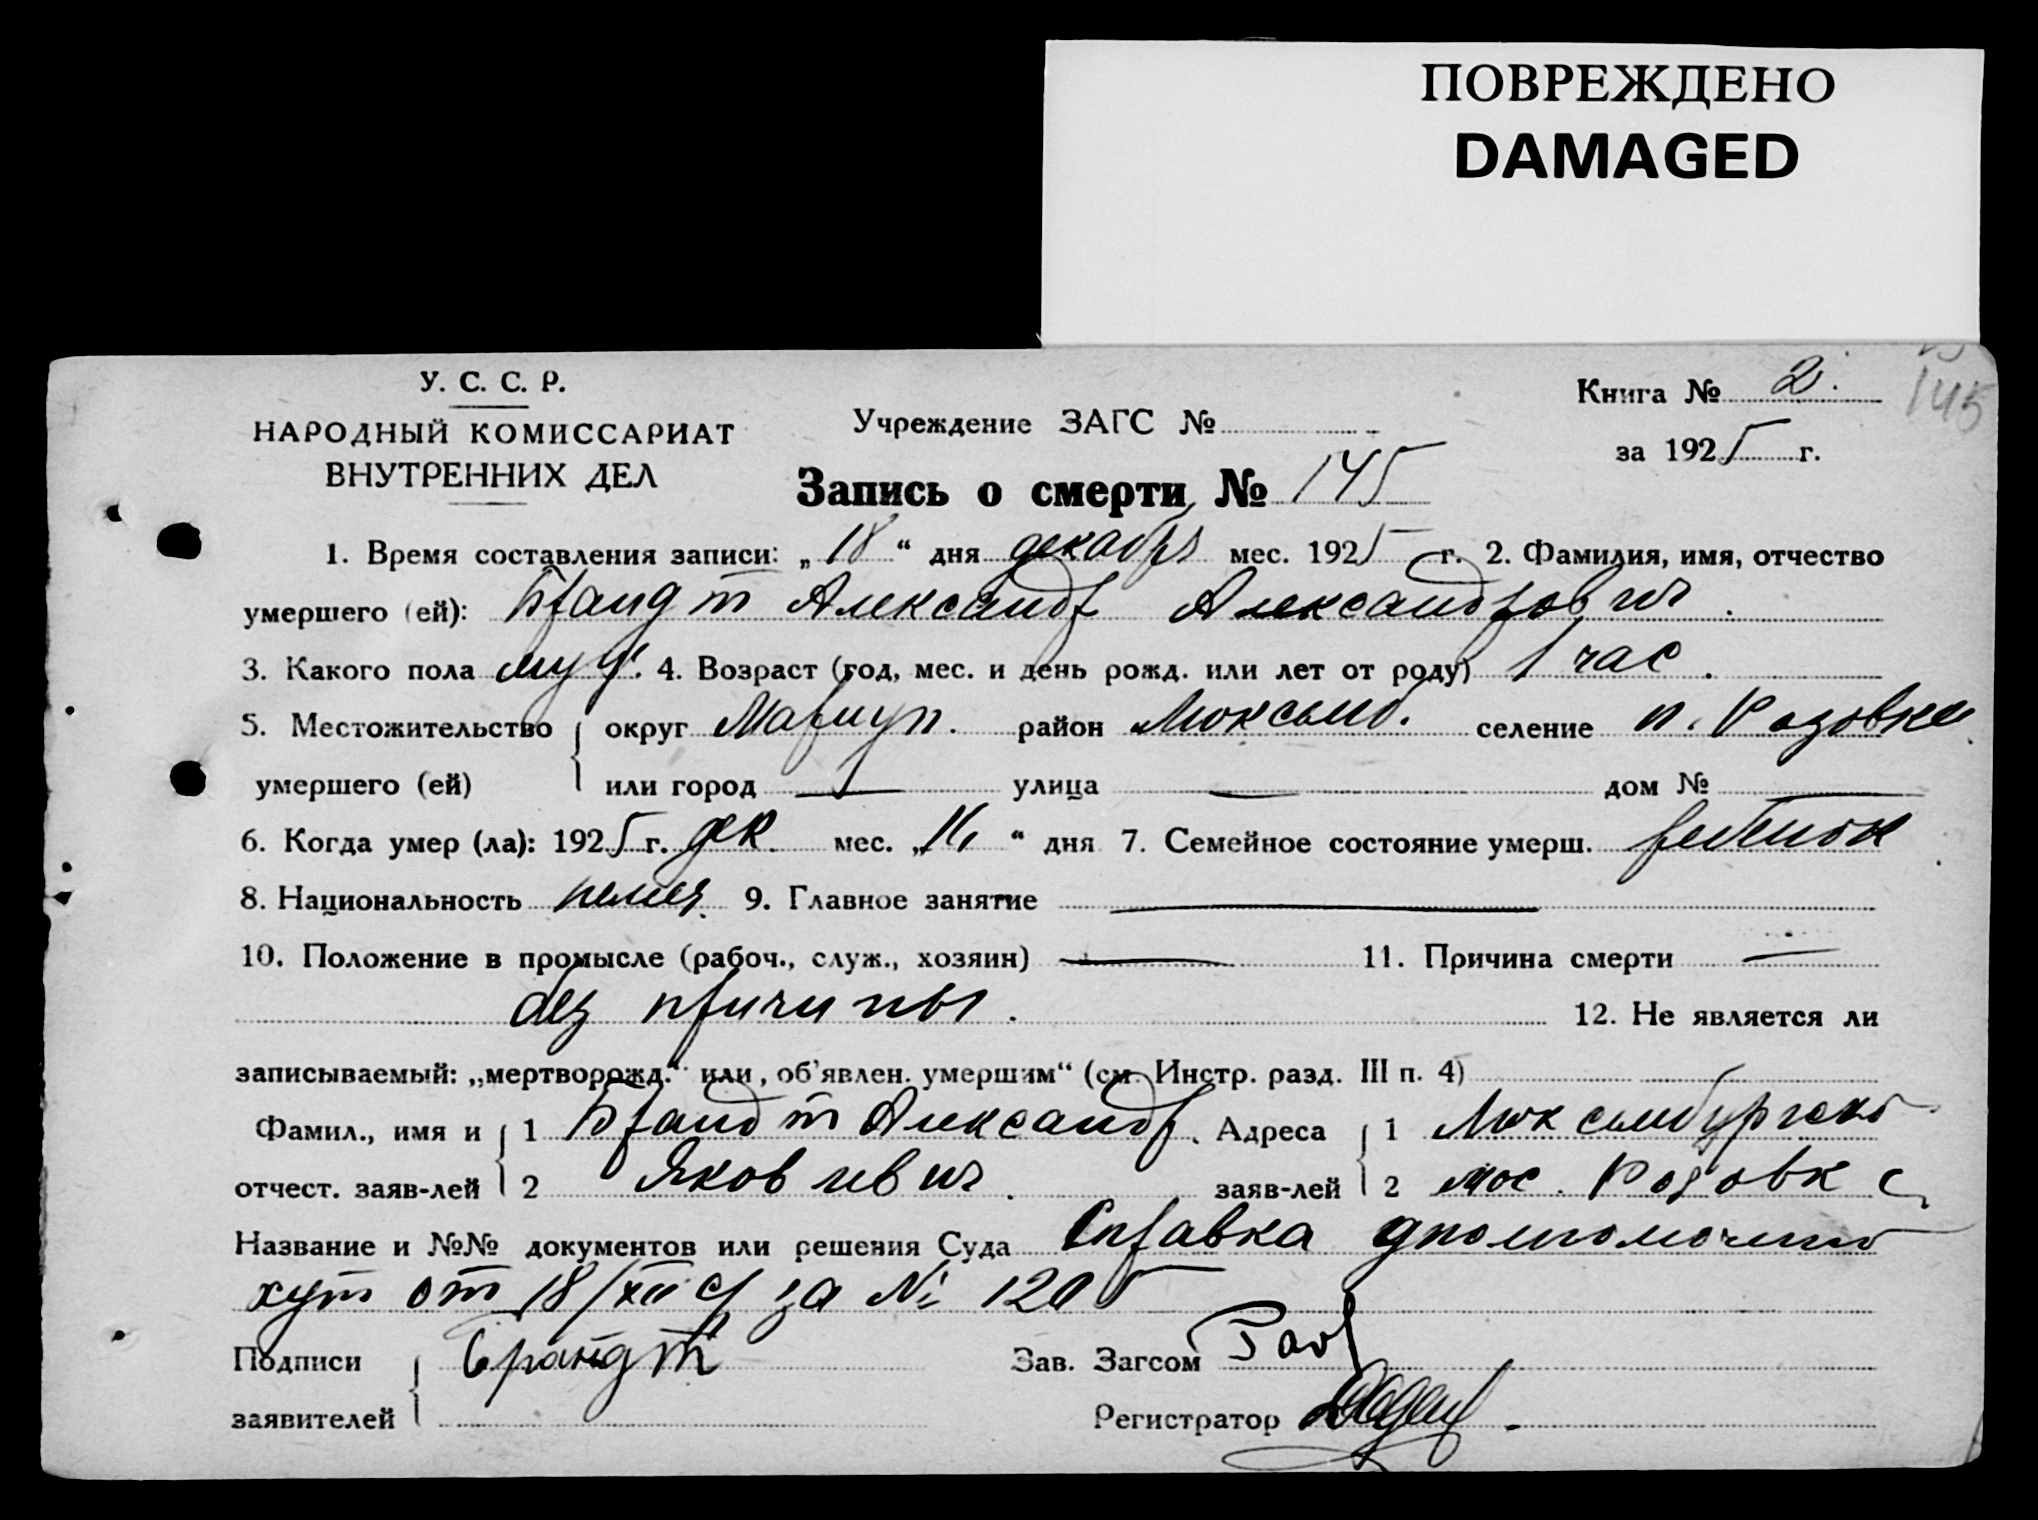 ПОВРЕЖДЕНО
DAMAGED
У. С. С. Р.
НАРОДНЫЙ КОМИССАРИАТ
ВНУТРЕННИХ ДЕЛ
Учреждение ЗАГС №
Книга № 2.
145
за 1925 г.
Запись о смерти № 145
1. Время составления записи: „18“ дня декабря мес. 1925 г. 2. Фамилия, имя, отчество
умершего (ей): Брандт Александр Александрович.
3. Какого пола муж. 4. Возраст (год, мес. и день рожд. или лет от роду) 1 час.
5. Местожительство округ Мариуп. район Люксемб. селение п. Розовка
умершего (ей) или город — улица — дом № —
6. Когда умер (ла): 1925 г. дек. мес. „16“ дня 7. Семейное состояние умерш. ребенок
8. Национальность немец. 9. Главное занятие —
10. Положение в промысле (рабоч., служ., хозяин) — 11. Причина смерти —
без причины. 12. Не является ли
записываемый: „мертворожд.“ или „об'явлен. умершим“ (см. Инстр. разд. III п. 4)
Фамил., имя и 1 Брандт Александр Адреса 1 Люксембургско
отчест. заяв-лей 2 Яковлевич. заяв-лей 2 пос. Розовка
Название и №№ документов или решения Суда Справка
хут от 18/XII с/ за № 1205
Подписи Брандт Зав. Загсом
заявителей Регистратор